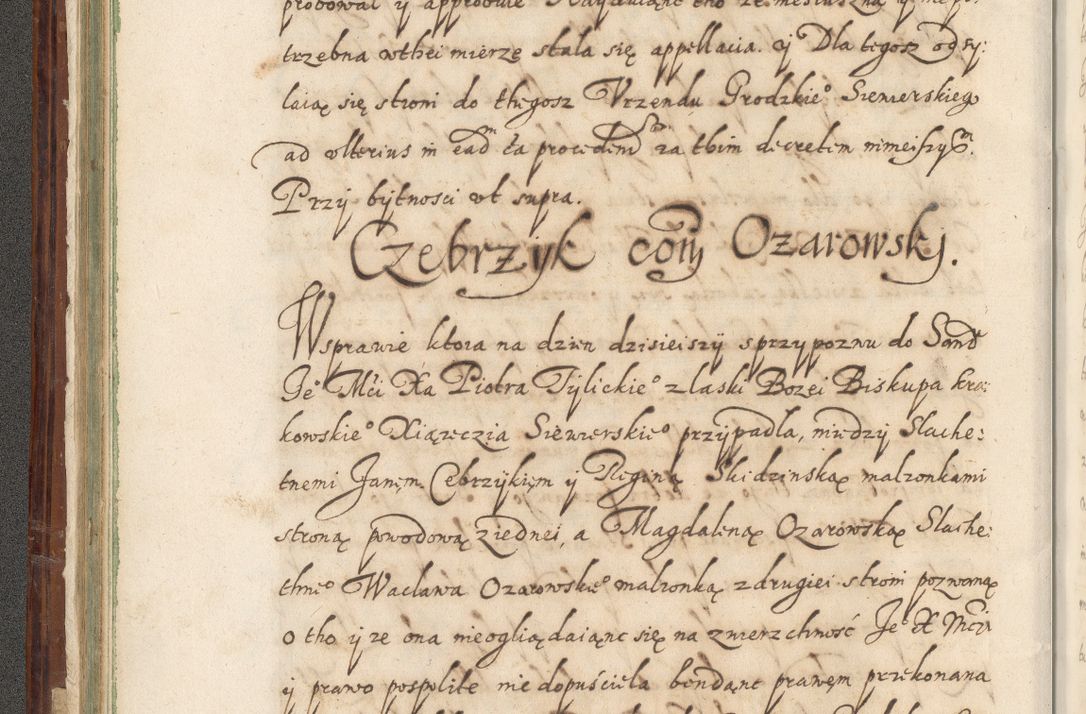 probował y approbuie Naydwiąc tho ze niesluszna y niepo:
trzebna wthei mierze stała się appellacia. ÿ Dla tegosz odsy:
łaiąc się stroni do thegosz Vrzendu Grodzkie⁰ Siewierskiego
ad vlterius in eadᵐ ta procedendᵘᵐ za tbim decretem nimeiszyᵐ.
Przÿ bÿtnosci vt supra.
Czebrzyk coñ Ozarowskj.
Wsprawie ktora na dzien dzisieiszÿ sprzypozwu do Sandᵘ
Jeᵒ Mći Xa Piotra Tÿlickieᵒ zlaski Bozei Biskupa kra:
kowskieᵒ Xiązęczia Siewierskieᵒ przÿpadla, miedzÿ Slache:
tnemi Janem Cebrzykiem ÿ Reginą Skidzinską malzonkami
stroną powodową ziednei, a Magdaleną Ozarowską Slache:
thneᵒ Wacława Ozarowskieᵒ malzonką zdrugiei stroni pozwaną
o tho ÿ ze ona nieoglią daiąnc się na zwierzchność Jeᵒ X Mći
ÿ prawo pospolite nie dopuściela bendąnc prawem przekonana